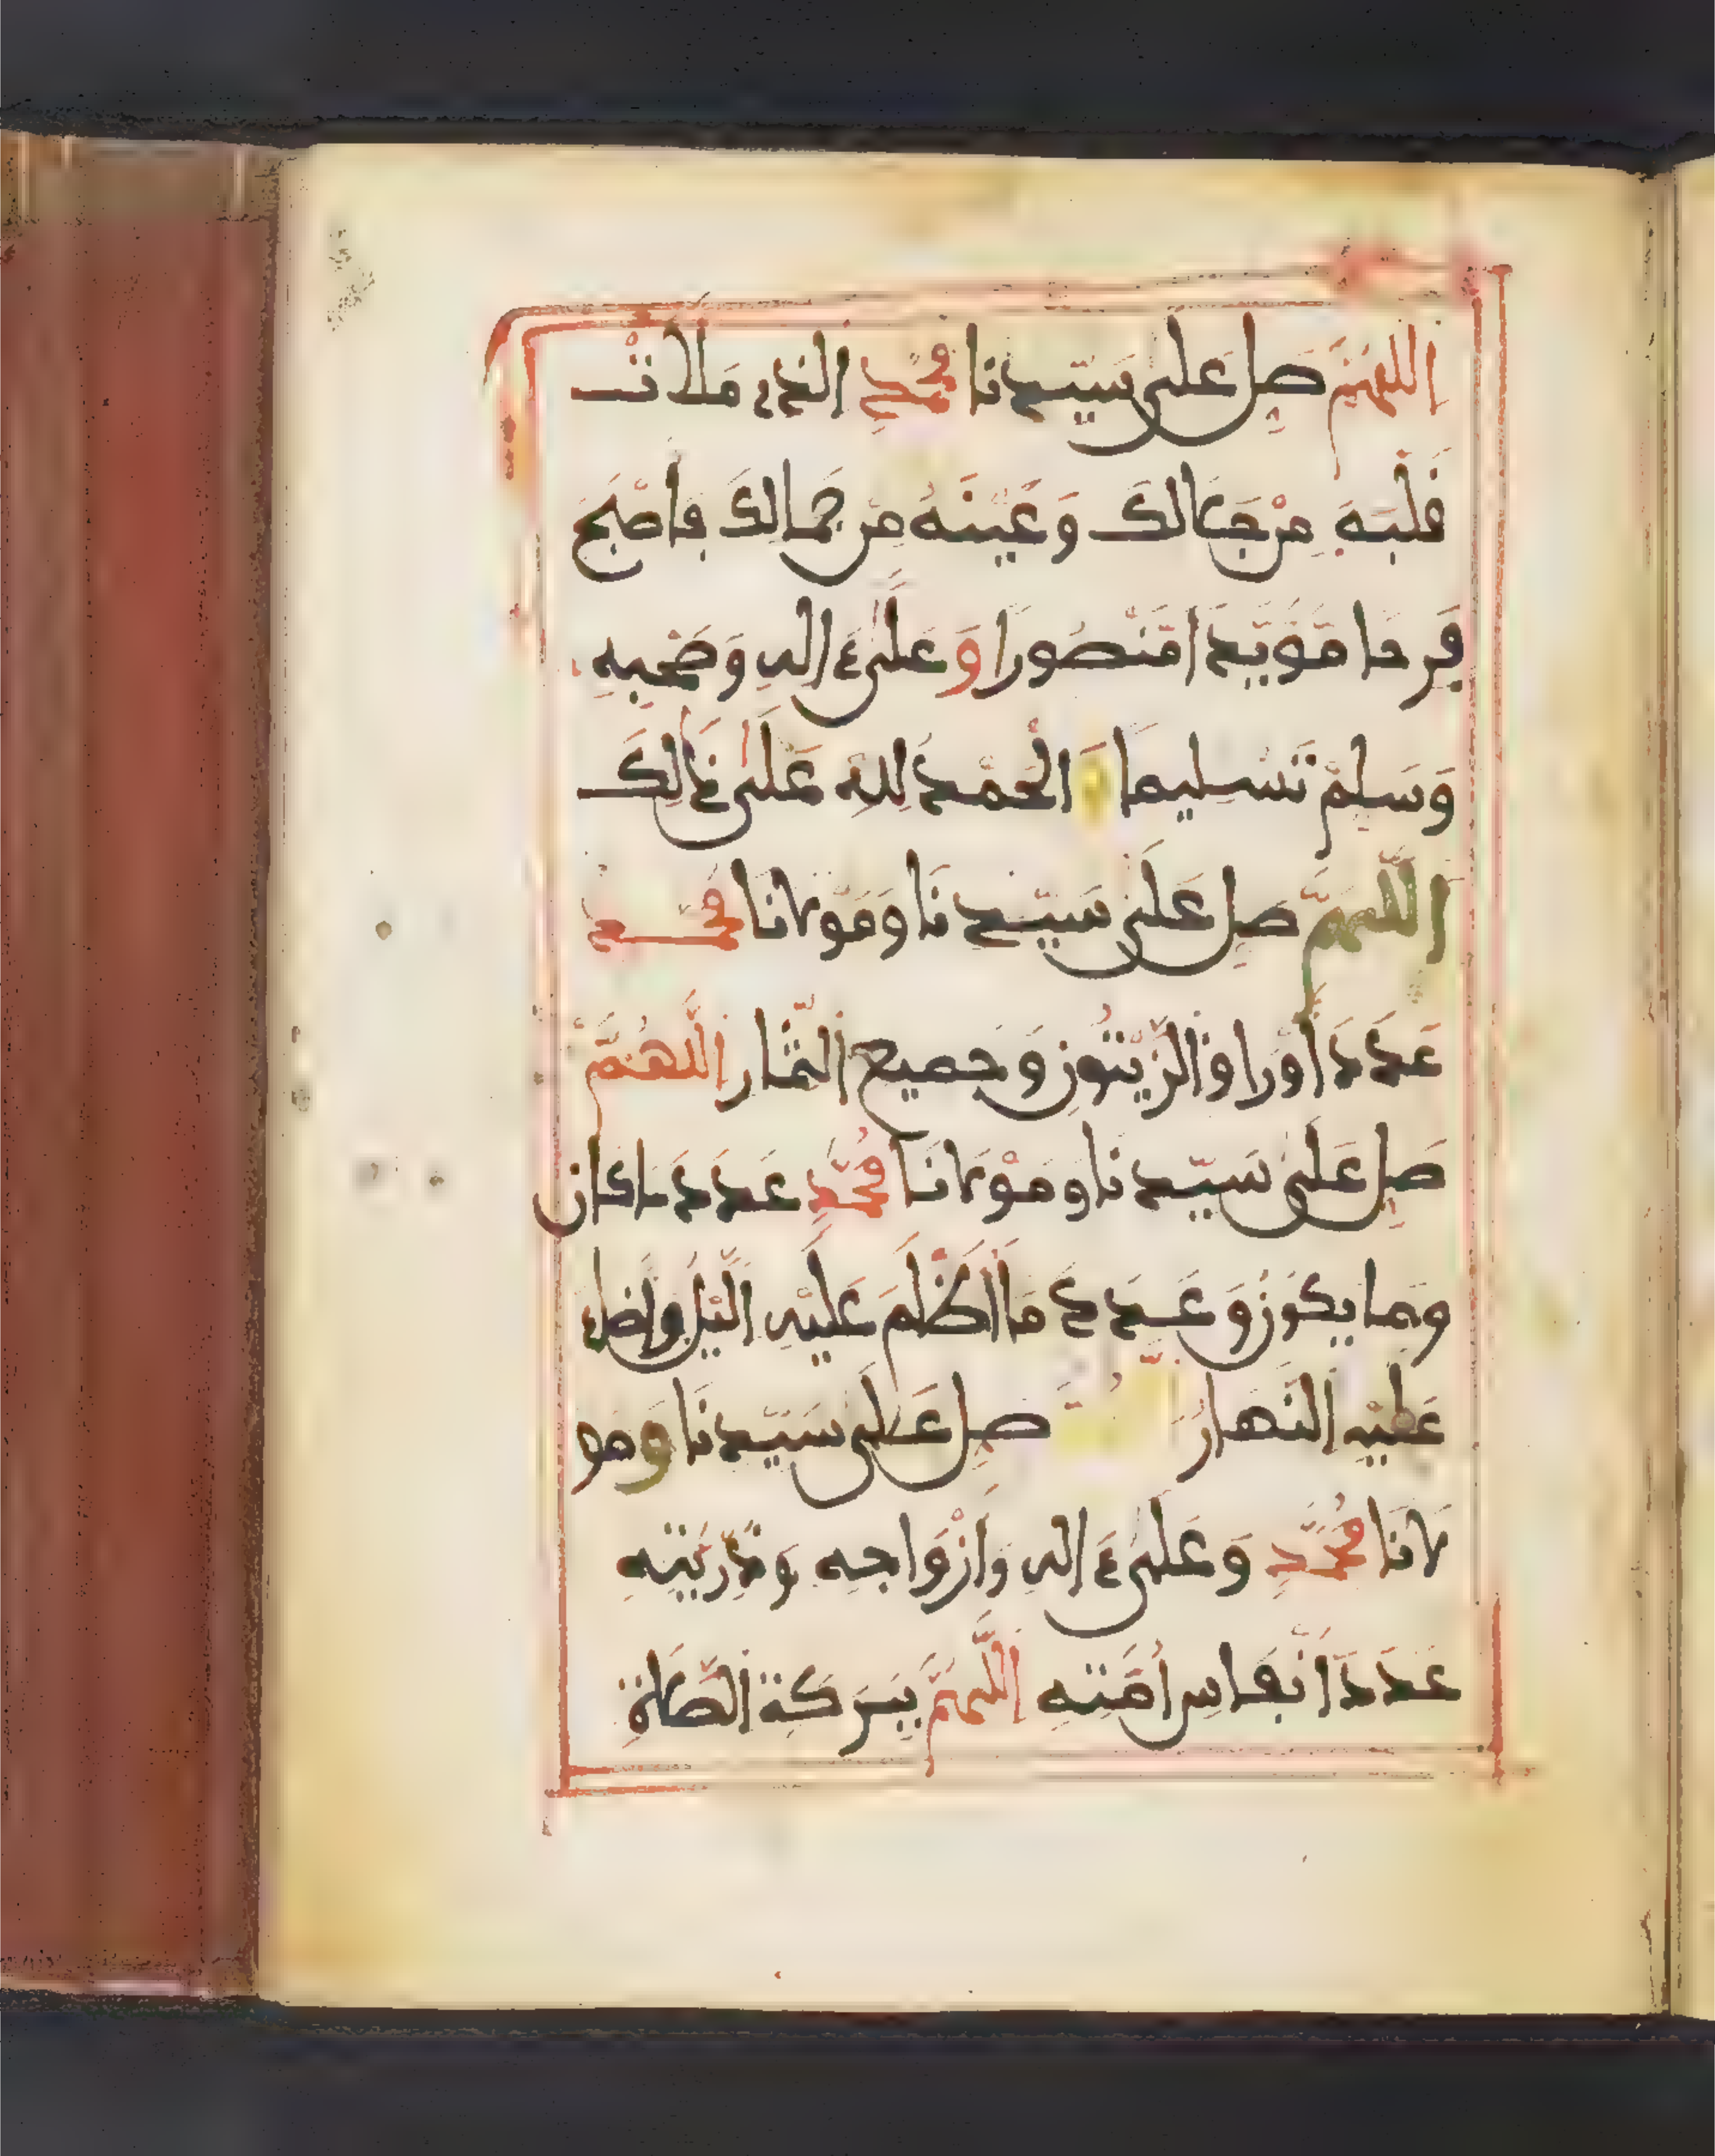 اللهم صل على سيدنا محمد الذي ملأت
قلبه من جلالك وعينه من جمالك فأصبح
فرحا مؤيدا منصورا وعلى ءاله وصحبه
وسلم تسليما والحمد لله على ذالك
اللهم صل على سيدنا ومولانا محمد
عدد أوراق الزيتون وجميع الثمار اللهم
صل على سيدنا ومولانا محمد عدد ما كان
وما يكون وعدد ما أظلم عليه الليل وأضاء
عليه النهار صل على سيدنا ومو
لانا محمد وعلى ءاله وأزواجه وذريته
عدد أنفاس أمته اللهم ببركة الصلاة